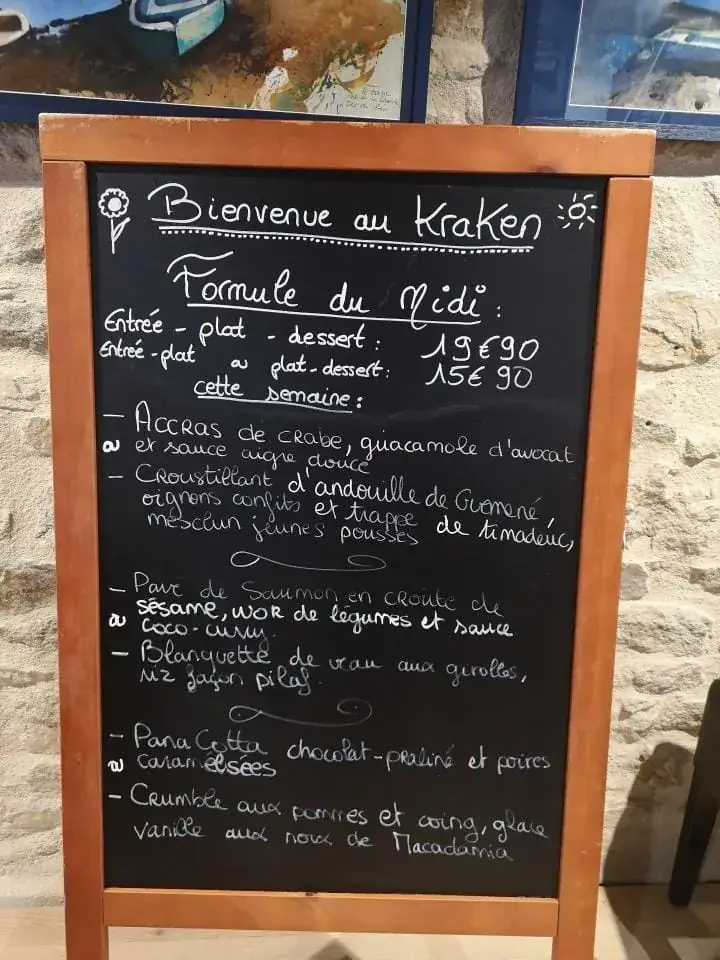 Bienvenue au Kraken
Formule du Midi :
Entrée - plat - dessert : 19€90
Entrée - plat ou plat - dessert : 15€90
cette semaine :
- Accras de crabe, guacamole d'avocat
ou et sauce aigre douce
- Croustillant d'andouille de Guémené,
oignons confits et trappe de timadeuc,
mesclun jeunes pousses
- Pavé de Saumon en croûte de
sésame, wok de légumes et sauce
ou coco-curry
- Blanquette de veau aux girolles,
riz façon pilaf.
- Pana Cotta chocolat-praliné et poires
ou caramélisées
- Crumble aux pommes et coing, glace
vanille aux noix de Macadamia